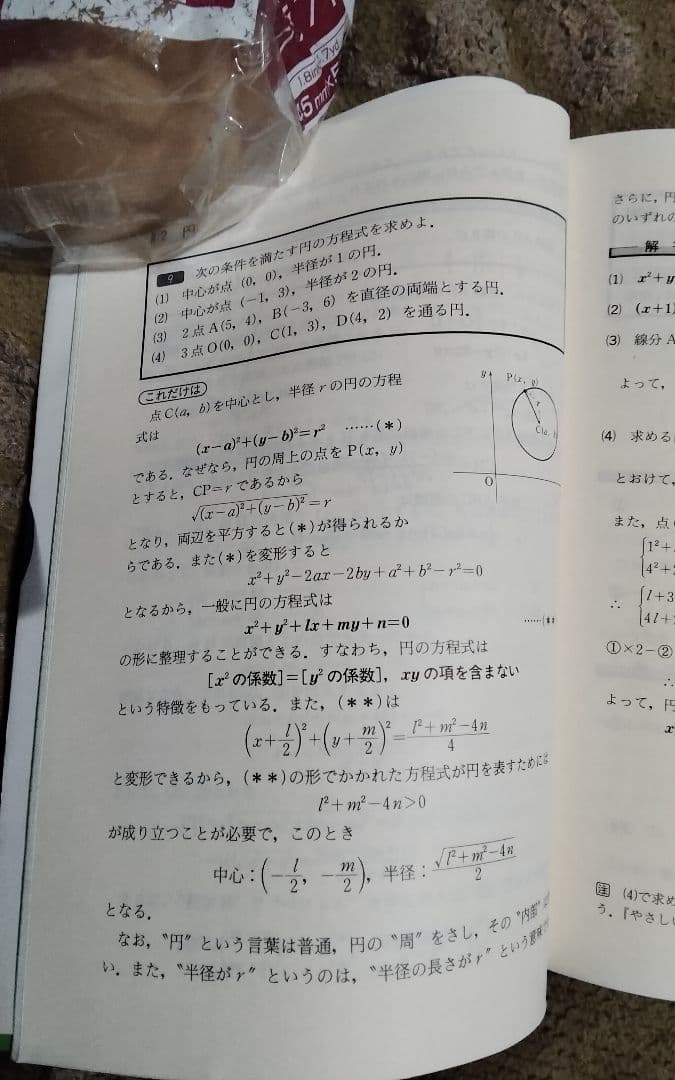 1.7yd
1.8in
45mm×5
2 円
9 次の条件を満たす円の方程式を求めよ．
(1) 中心が点 (0, 0)，半径が 1 の円．
(2) 中心が点 (−1, 3)，半径が 2 の円．
(3) 2点 A(5, 4)，B(−3, 6) を直径の両端とする円．
(4) 3点 O(0, 0)，C(1, 3)，D(4, 2) を通る円．
これだけは
点 C(a, b) を中心とし，半径 r の円の方程
式は
(x−a)²+(y−b)²=r² ……(＊)
である．なぜなら，円の周上の点を P(x, y)
とすると，CP=r であるから
√((x−a)²+(y−b)²)=r
となり，両辺を平方すると(＊)が得られるか
らである．また(＊)を変形すると
x²+y²−2ax−2by+a²+b²−r²=0
となるから，一般に円の方程式は
x²+y²+lx+my+n=0 ……(＊＊
の形に整理することができる．すなわち，円の方程式は
[x² の係数]=[y² の係数]，xy の項を含まない
という特徴をもっている．また，(＊＊)は
(x+l/2)²+(y+m/2)²=(l²+m²−4n)/4
と変形できるから，(＊＊)の形でかかれた方程式が円を表すためには
l²+m²−4n>0
が成り立つことが必要で，このとき
中心：(−l/2, −m/2)，半径：√(l²+m²−4n)/2
となる．
なお，"円" という言葉は普通，円の "周" をさし，その "内部"
い．また，"半径が r" というのは，"半径の長さが r" という意味
y
P(x, y)
r
C(a,
O
さらに，円
のいずれの
解
(1) x²+y
(2) (x+1)
(3) 線分 A
よって，
(4) 求める
とおけて，
また，点
{1²+
{4²+
∴ {l+3
{4l+
①×2−②
∴
よって，円
x
注 (4)で求め
う．『やさし